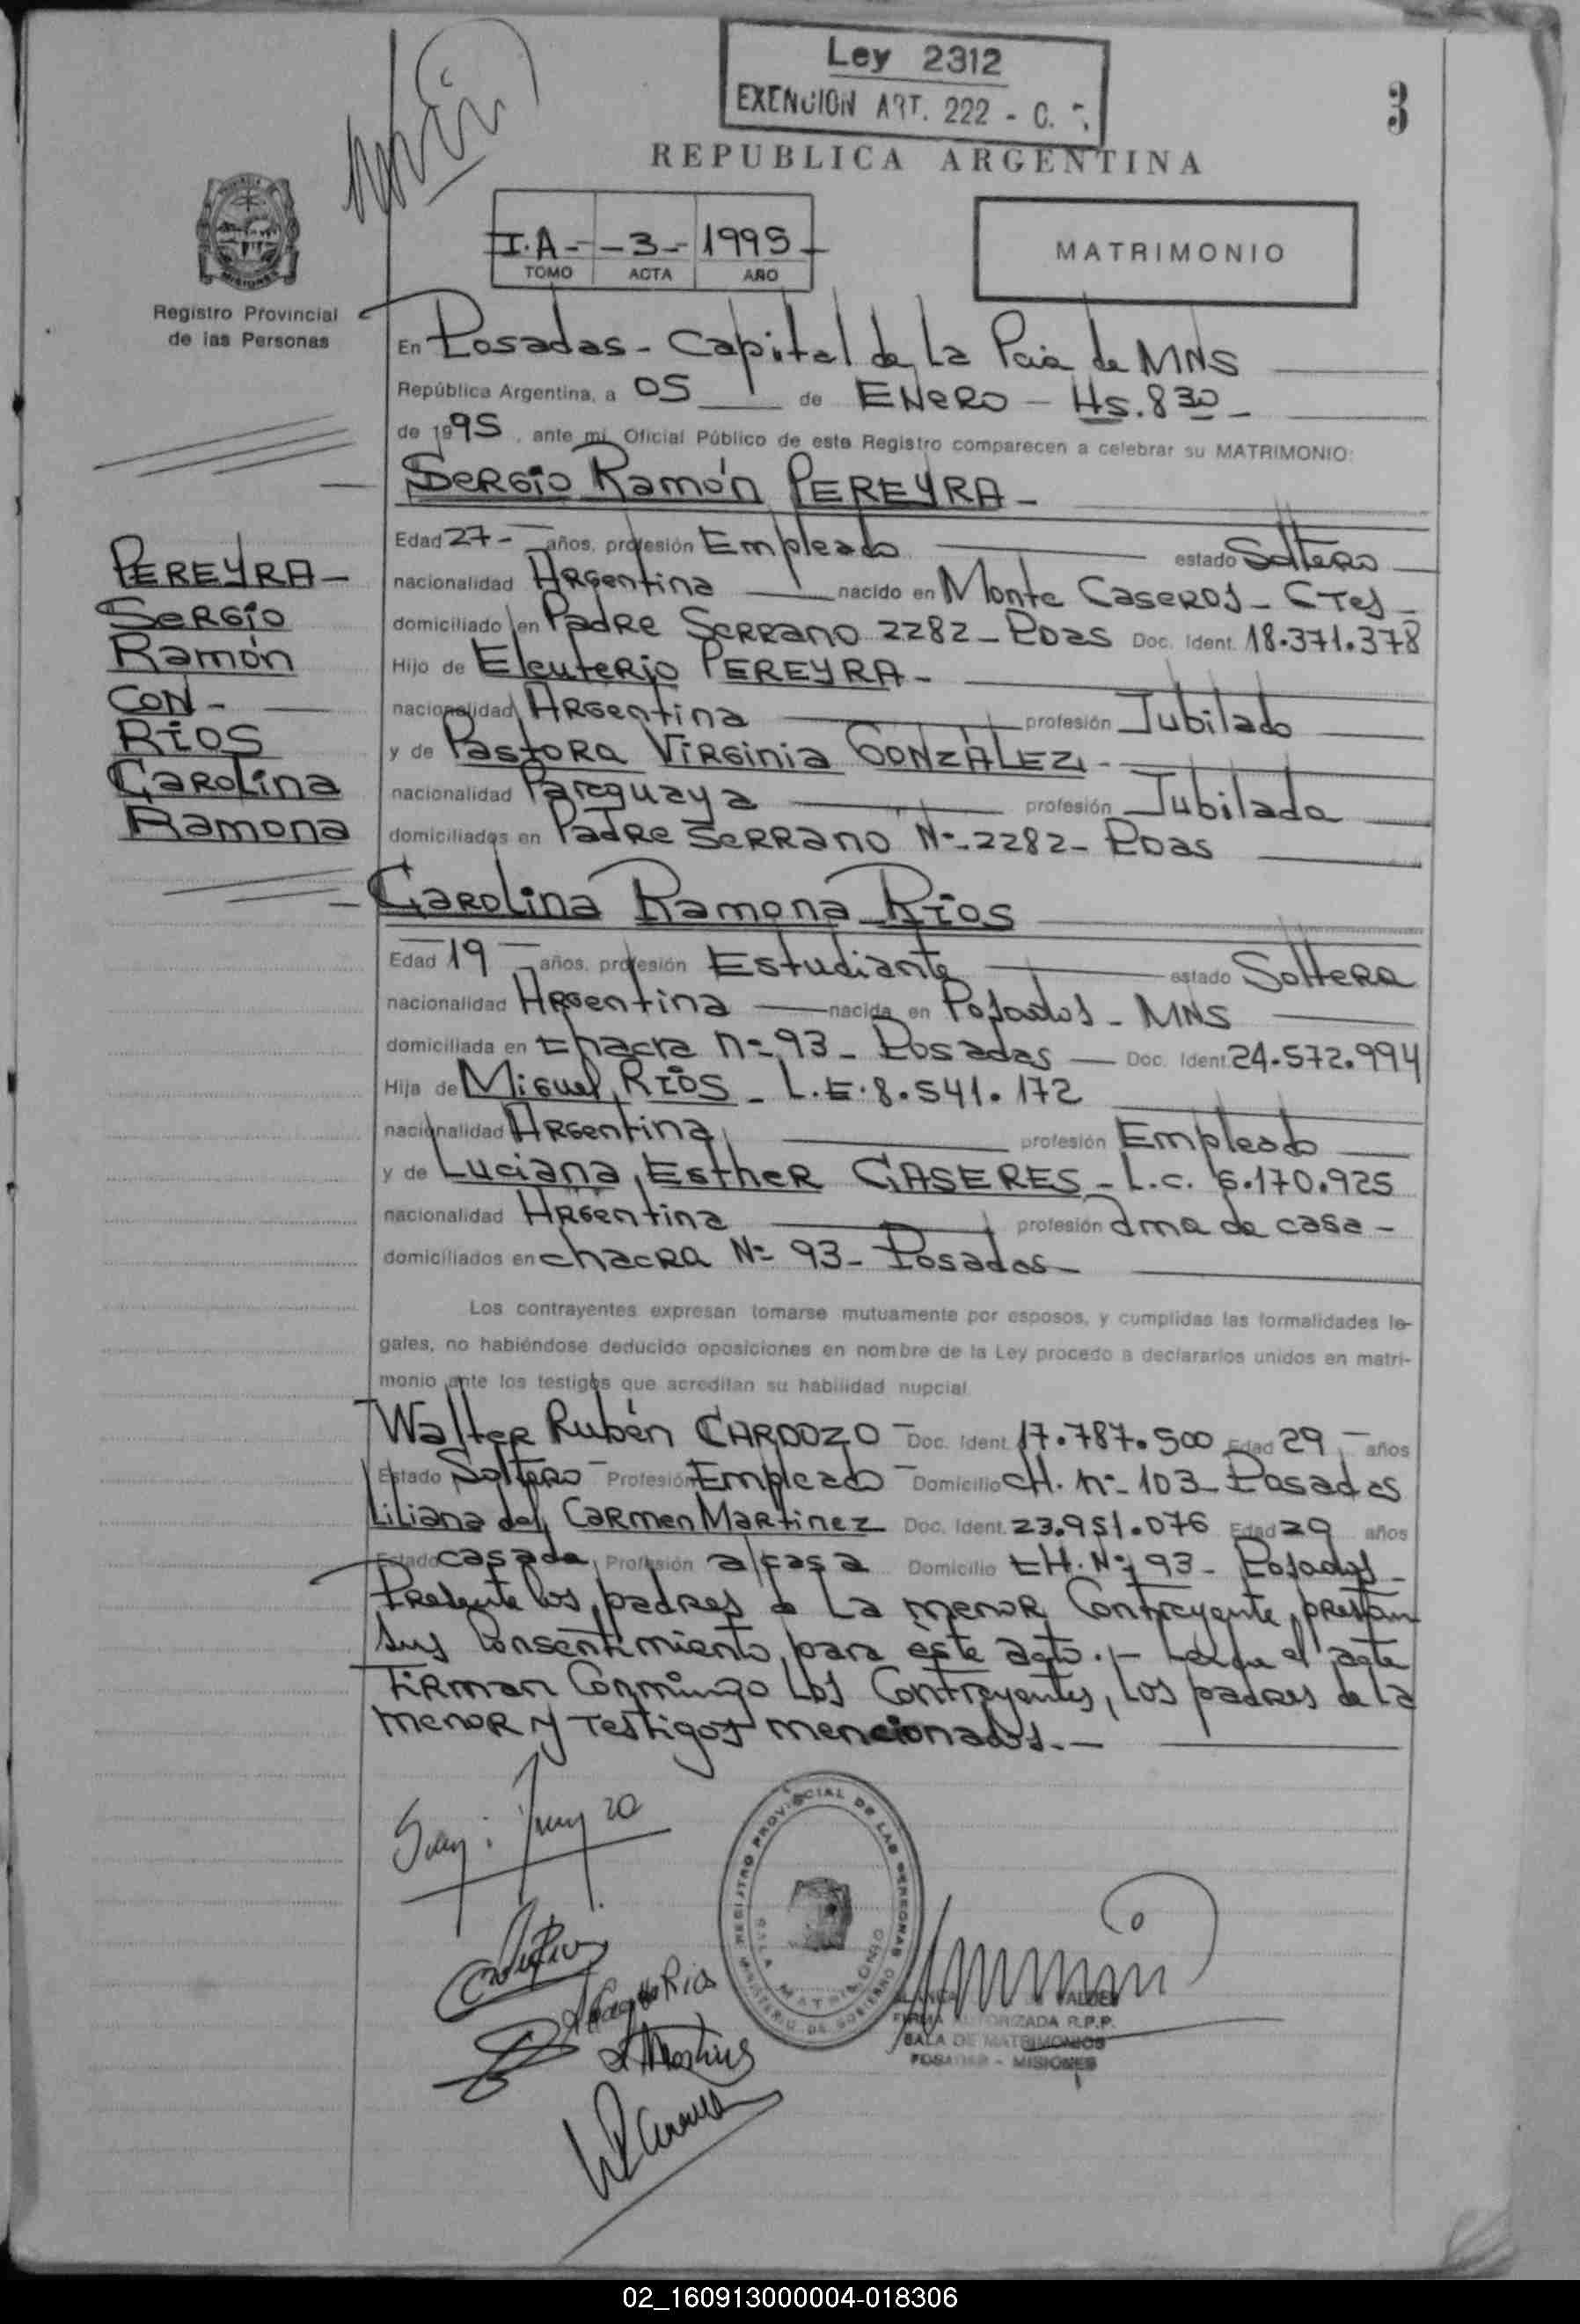 Ley 2312
EXENCION ART. 222 - C.
3
REPUBLICA ARGENTINA
I.A - - 3 - 1995
TOMO ACTA AÑO
MATRIMONIO
Registro Provincial
de las Personas
En Posadas - Capital de La Pcia de MNS
República Argentina, a 05 de ENERO - Hs. 8 30 -
de 1995, ante mí, Oficial Público de este Registro comparecen a celebrar su MATRIMONIO:
Sergio Ramón PEREYRA -
Edad 27 - años, profesión Empleado estado Soltero
nacionalidad Argentina nacido en Monte Caseros - CTes -
domiciliado en Padre Serrano 2282 - Pdas Doc. Ident. 18.371.378
Hijo de Eleuterio PEREYRA -
nacionalidad Argentina profesión Jubilado
y de Pastora Virginia GONZÀLEZ -
nacionalidad Paraguaya profesión Jubilada
domiciliados en Padre Serrano Nº 2282 - Pdas
PEREYRA -
Sergio
Ramón
CON -
RIOS
Carolina
Ramona
Carolina Ramona Rios
Edad 19 años, profesión Estudiante estado Soltera
nacionalidad Argentina nacida en Posadas - MNS
domiciliada en Chacra nº 93 - Posadas - Doc. Ident. 24.572.994
Hija de Miguel RIOS - L.E. 8.541.172
nacionalidad Argentina profesión Empleado
y de Luciana Esther CASERES - L.C. 6.170.925
nacionalidad Argentina profesión ama de casa -
domiciliados en chacra Nº 93 - Posadas -
Los contrayentes expresan tomarse mutuamente por esposos, y cumplidas las formalidades le-
gales, no habiéndose deducido oposiciones en nombre de la Ley procedo a declararlos unidos en matri-
monio ante los testigos que acreditan su habilidad nupcial
Walter Rubén CARDOZO - Doc. Ident. 17.787.500 Edad 29 - años
Estado Soltero - Profesión Empleado - Domicilio CH. nº 103 - Posadas
Liliana del Carmen Martinez Doc. Ident. 23.951.076 Edad 29 años
Estado casada Profesión a/casa Domicilio CH. Nº 93 - Posadas -
Presente los padres de La menor Contrayente, prestan
sus Consentimiento para èste acto. - Leída el acta
Firman Conmingo Los Contrayentes, Los padres de La
menor y Testigos mencionados. -
REGISTRO PROVINCIAL DE LAS PERSONAS
SALA MATRIMONIO
MINISTERIO DE GOBIERNO
VALDES
FIRMA AUTORIZADA R.P.P.
SALA DE MATRIMONIOS
POSADAS - MISIONES
02_160913000004-018306